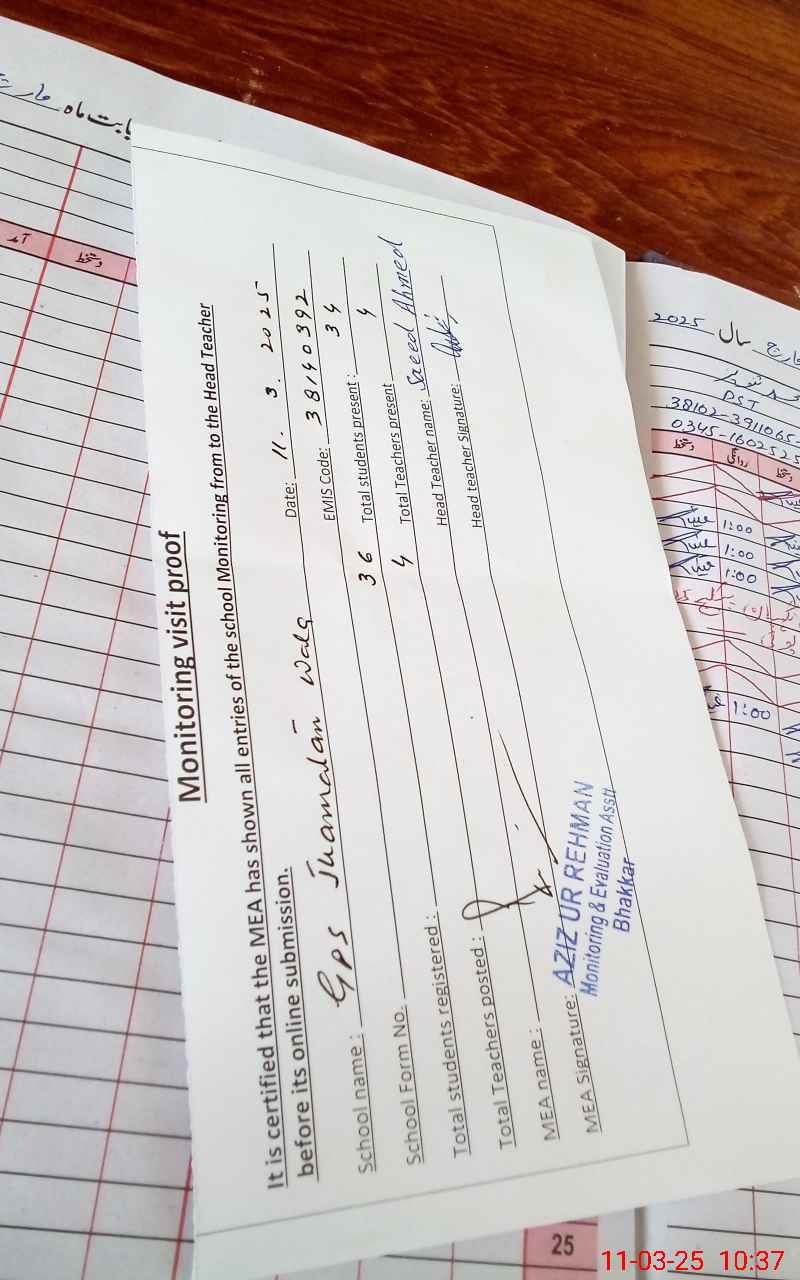 Monitoring visit proof
It is certified that the MEA has shown all entries of the school Monitoring from to the Head Teacher
before its online submission.
School name : GPS Jhamatan wala Date: 11. 3. 2025
School Form No. EMIS Code: 38140392
Total students registered : 36 Total students present : 34
Total Teachers posted : 4 Total Teachers present 4
MEA name : Head Teacher name: Saeed Ahmed
MEA Signature: Head teacher Signature:
AZIZ UR REHMAN
Monitoring & Evaluation Asstt
Bhakkar
بابت ماہ مارچ
آمد
دستخط
مارچ سال 2025
PST
38102-3911065-
0345-1602525
دستخط روانگی دستخط
1:00
1:00
1:00
1:00
25
11-03-25 10:37